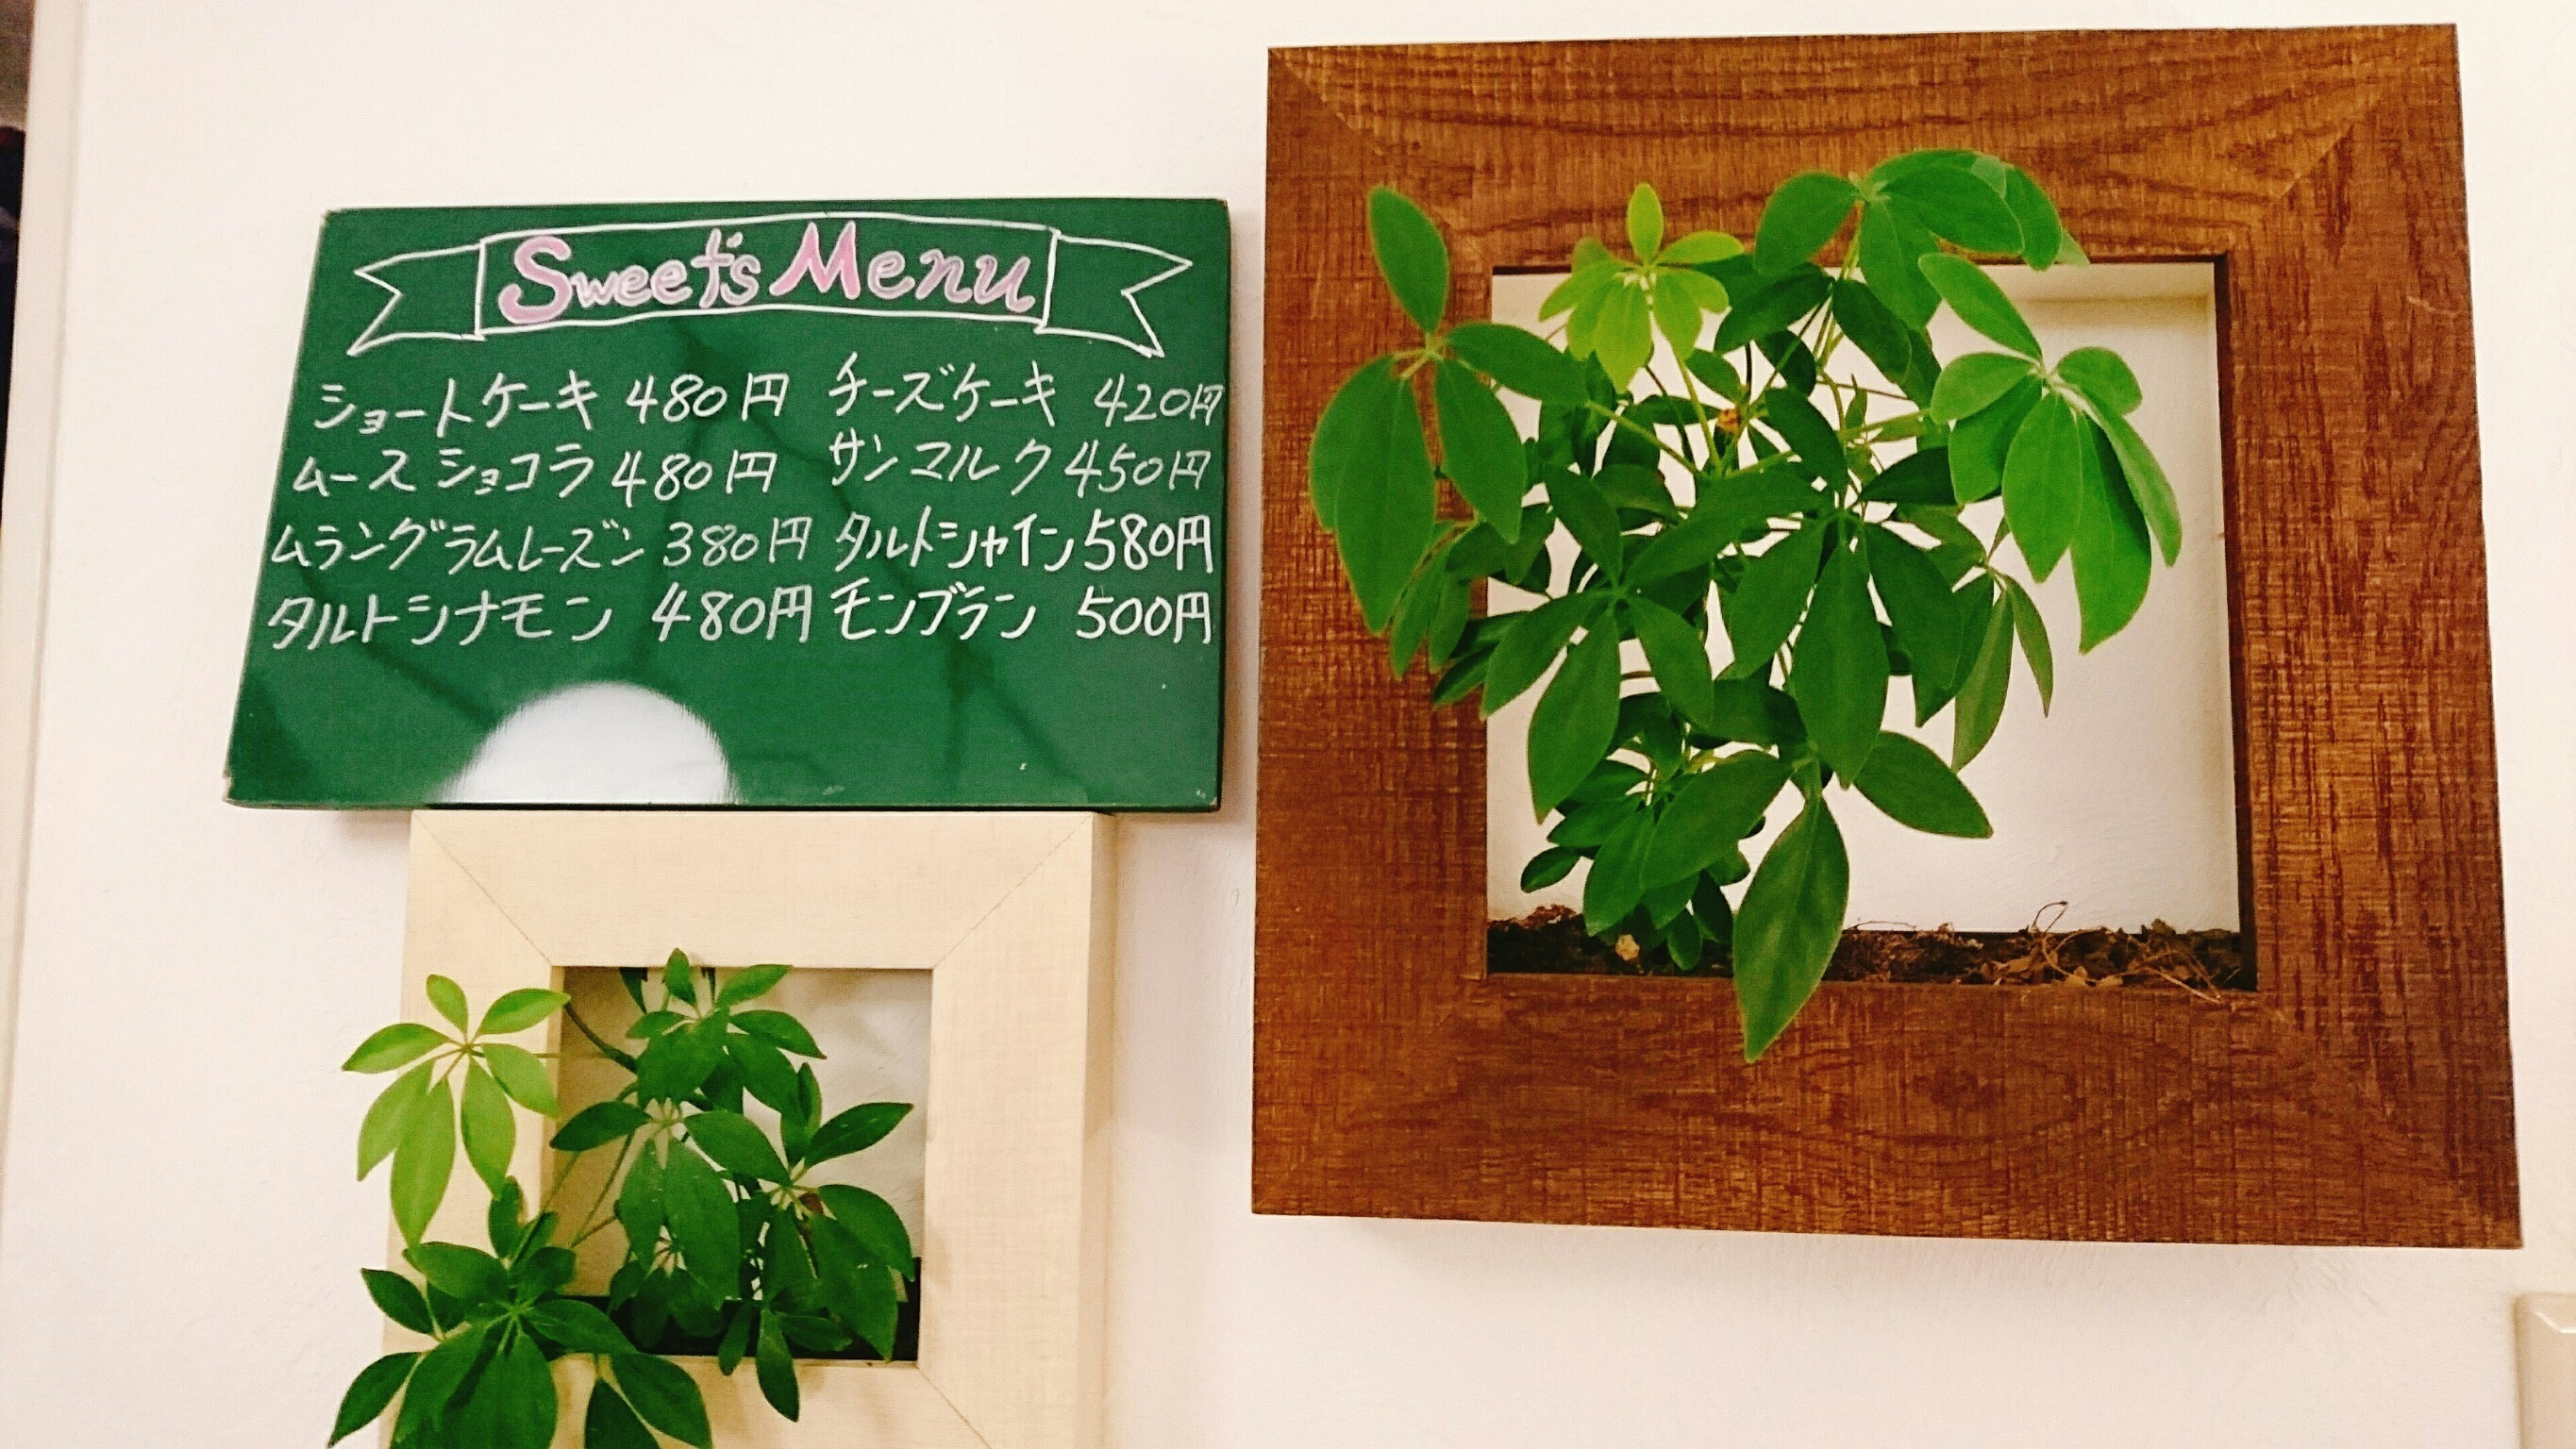 Sweet's Menu
ショートケーキ 480円 チーズケーキ 420円
ムース ショコラ 480円 サンマルク 450円
ムラングラムレーズン 380円 タルトシャイン 580円
タルトシナモン 480円 モンブラン 500円